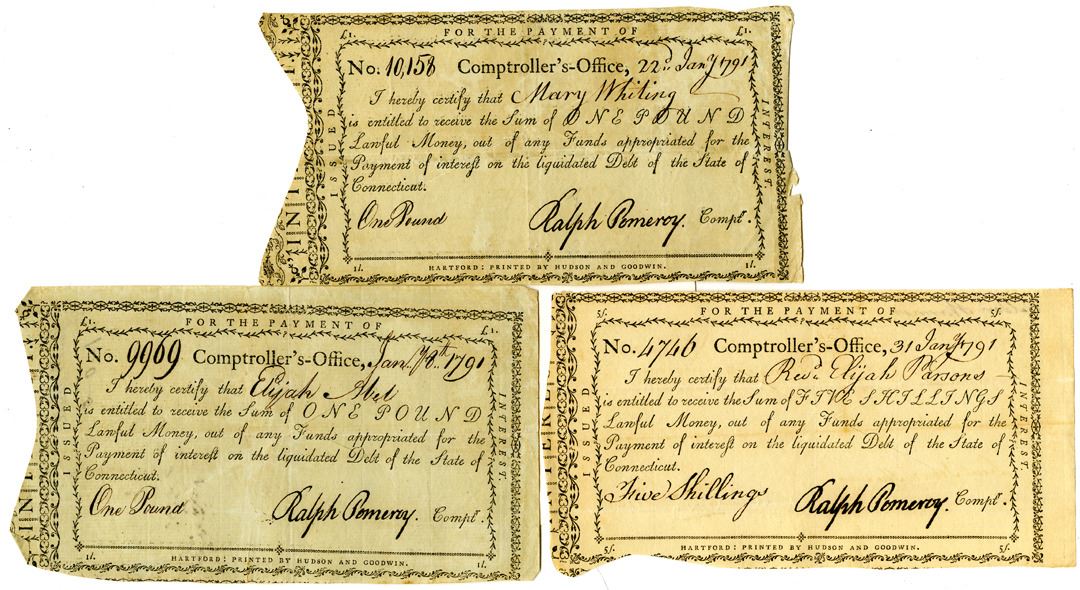 £1. FOR THE PAYMENT OF £1.
No. 10,158 Comptroller's-Office, 22d Jany 1791
I hereby certify that Mary Whiting
is entitled to receive the Sum of ONE POUND
Lawful Money, out of any Funds appropriated for the
Payment of intereſt on the liquidated Debt of the State of
Connecticut.
One Pound Ralph Pomeroy. Compt.
1l. HARTFORD: PRINTED BY HUDSON AND GOODWIN. 1l.
ISSUED
INTEREST.
£1. FOR THE PAYMENT OF £1.
No. 9969 Comptroller's-Office, 1791
I hereby certify that Elijah Abel
is entitled to receive the Sum of ONE POUND
Lawful Money, out of any Funds appropriated for the
Payment of intereſt on the liquidated Debt of the State of
Connecticut.
One Pound Ralph Pomeroy. Compt.
1l. HARTFORD: PRINTED BY HUDSON AND GOODWIN. 1l.
ISSUED
INTEREST.
5ſ. FOR THE PAYMENT OF 5ſ.
No. 4746 Comptroller's-Office, 31 Jany 1791
I hereby certify that Revd. Elijah Parsons
is entitled to receive the Sum of FIVE SHILLINGS
Lawful Money, out of any Funds appropriated for the
Payment of intereſt on the liquidated Debt of the State of
Connecticut.
Five Shillings Ralph Pomeroy. Compt.
5ſ. HARTFORD: PRINTED BY HUDSON AND GOODWIN. 5ſ.
ISSUED
INTEREST.